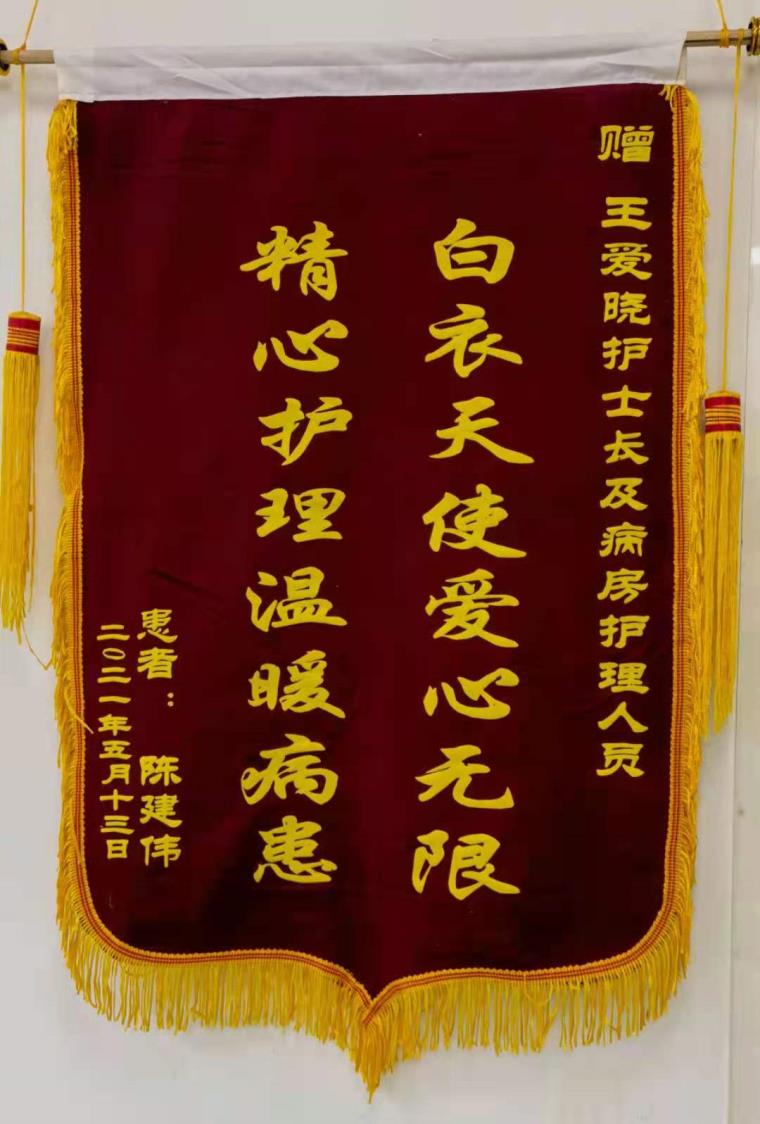 赠 王爱晓护士长及病房护理人员
白衣天使爱心无限
精心护理温暖病患
患者： 陈建伟
二〇二一年五月十三日